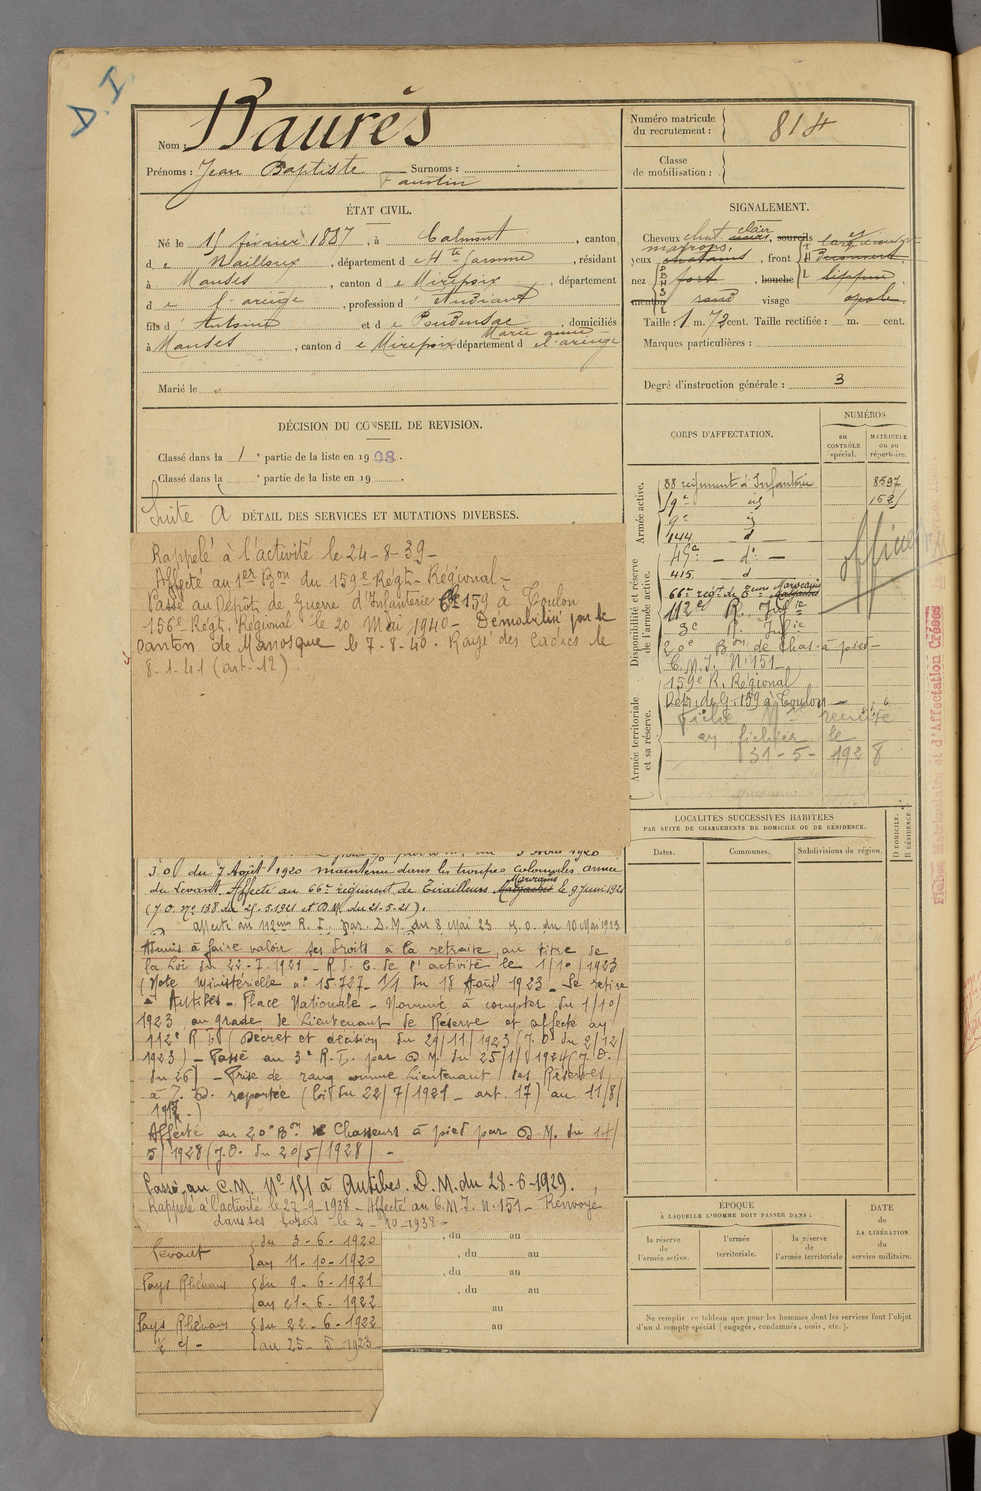 D. I.
Nom : Baurès
Prénoms : Jean Baptiste Faustin Surnoms :
Numéro matricule du recrutement : 814
Classe de mobilisation :
ÉTAT CIVIL.
Né le 15 février 1887, à Calmont, canton
de Nailloux, département de Hte Garonne, résidant
à Manses, canton de Mirepoix, département
de l'ariège, profession d'Etudiant
fils d'Antoine et de Marie anne, domiciliés
à Manses, canton de Mirepoix département de l'ariège
Marié le
SIGNALEMENT.
Cheveux chat. clair, sourcils
marrons,
yeux chatains, front
nez fort, bouche
menton rond visage
Taille : 1 m. 72 cent. Taille rectifiée : m. cent.
Marques particulières :
Degré d'instruction générale : 3
DÉCISION DU CONSEIL DE REVISION.
Classé dans la 1e partie de la liste en 1908.
Classé dans la e partie de la liste en 19 .
Suite A DÉTAIL DES SERVICES ET MUTATIONS DIVERSES.
Rappelé à l'activité le 24-8-39-
Affecté au 1er Bon du 159e Régt- Régional-
Passé au Dépôt de Guerre d'Infanterie 159 à Toulon
156e Régt. Régional le 20 Mai 1940- Démobilisé par le
canton de Manosque le 7-8-40. Rayé des cadres le
8.1.41 (art. 12).
J.O. du 7 Août 1920 maintenu dans les troupes coloniales armée
du Levant. Affecté au 66e régiment de Tirailleurs Marocains le 9 juin 1921
(J.O. no 138 du 25.5.1921 et D.M. du 21-5-21).
affecté au 112eme R. I. par D.M. du 8 Mai 23 J.O. du 10 Mai 1923
Admis à faire valoir ses droits à la retraite au titre de
la Loi du 22-7-1921 - R.d.C. de l'activité le 1/10/1923
(Note ministérielle n° 15727-1/1 du 18 Août 1923 - Se retire
à Antibes - Place Nationale - Nommé à compter du 1/10/
1923 au grade de Lieutenant de Réserve et affecté au
112e R.I. (Décret et décision du 29/11/1923 (J.O. du 2/12/
1923) - Passé au 3e R.I. par D.M. du 25/1/1924 (J.O.
du 26) - Prise de rang comme Lieutenant des Réserves
à T.D. reportée (loi du 22/7/1921 - art. 17) au 11/8/
Affecté au 20e Bon de Chasseurs à pied par D.M. du 14/
5/1928 (J.O. du 20/5/1928) -
Passé au C.M. N° 151 à Antibes. D.M. du 28-6-1929.
Rappelé à l'activité le 27-9-1938 - Affecté au C.M.I. N. 151 - Renvoyé
dans ses foyers le 2-10-1938-
Levant du 3-6-1920
au 11-10-1920
Pays Rhénans du 9-6-1921
au 21-6-1922
Pays Rhénans du 22-6-1922
½ c/- au 25-5-1923
, du au
, du au
, du au
, du au
au
au
CORPS D'AFFECTATION.
NUMÉROS
au CONTRÔLE spécial.
MATRICULE ou au répertoire.
Armée active.
88 régiment d'Infanterie 8597
9e id
9e id
144 - d -
Disponibilité et réserve de l'armée active.
45e - d° -
415 - d
66e regt de Teurs Marocains
112e R. Infie
3e R. Infie
20e Bon de Chas. à pied-
C.M.I. N° 151
Armée territoriale et sa réserve.
159e R. Régional
Dép. de G. 159 à Toulon -
Fiche Mle remise
au fichier le
31-5-1928
officier
Fiches Matriculaire et d'Affectation Créées
LOCALITÉS SUCCESSIVES HABITÉES
PAR SUITE DE CHANGEMENTS DE DOMICILE OU DE RÉSIDENCE.
Dates. Communes. Subdivisions de région.
D DOMICILE. R RÉSIDENCE.
ÉPOQUE
À LAQUELLE L'HOMME DOIT PASSER DANS :
la réserve de l'armée active.
l'armée territoriale.
la réserve de l'armée territoriale
DATE de LA LIBÉRATION du service militaire.
Ne remplir ce tableau que pour les hommes dont les services font l'objet
d'un compte spécial (engagés, condamnés, omis, etc.).